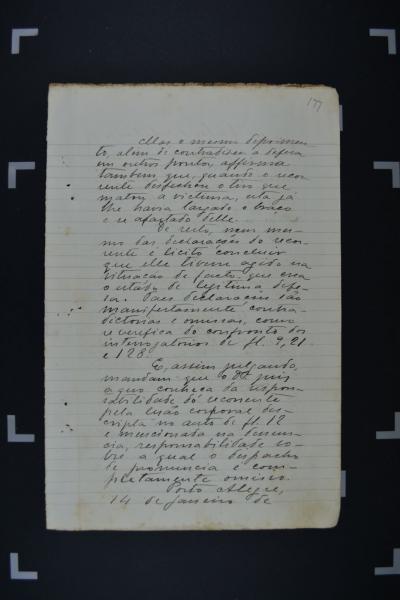 177
Mas o mesmo depoimen-
to, alem de contradizer a defeza
em outros pontos, affirma
tambem que, quando o recor-
rente desfechou o tiro que
matou a victima, esta já
lhe havia largado o braço
e se afastado delle.
De resto, nem mes-
mo das declarações do recor-
rente é licito concluir
que elle tivesse agido na
situação de facto que crea
o estado de legitima defe-
sa. Taes declarações são
manifestamente contra-
dictorias e omissas, como
se verifica do confronto dos
interrogatorios de fl. 9, 21
e 128.
E, assim julgando,
mandam que o Dr. juiz
a quo conheça da respon-
sabilidade do recorrente
pela lesão corporal des-
cripta no auto de fl. 18
e mencionada na denun-
cia, responsabilidade so-
bre a qual o despacho
de pronuncia é com-
pletamente omisso.
Porto Alegre,
14 de janeiro de